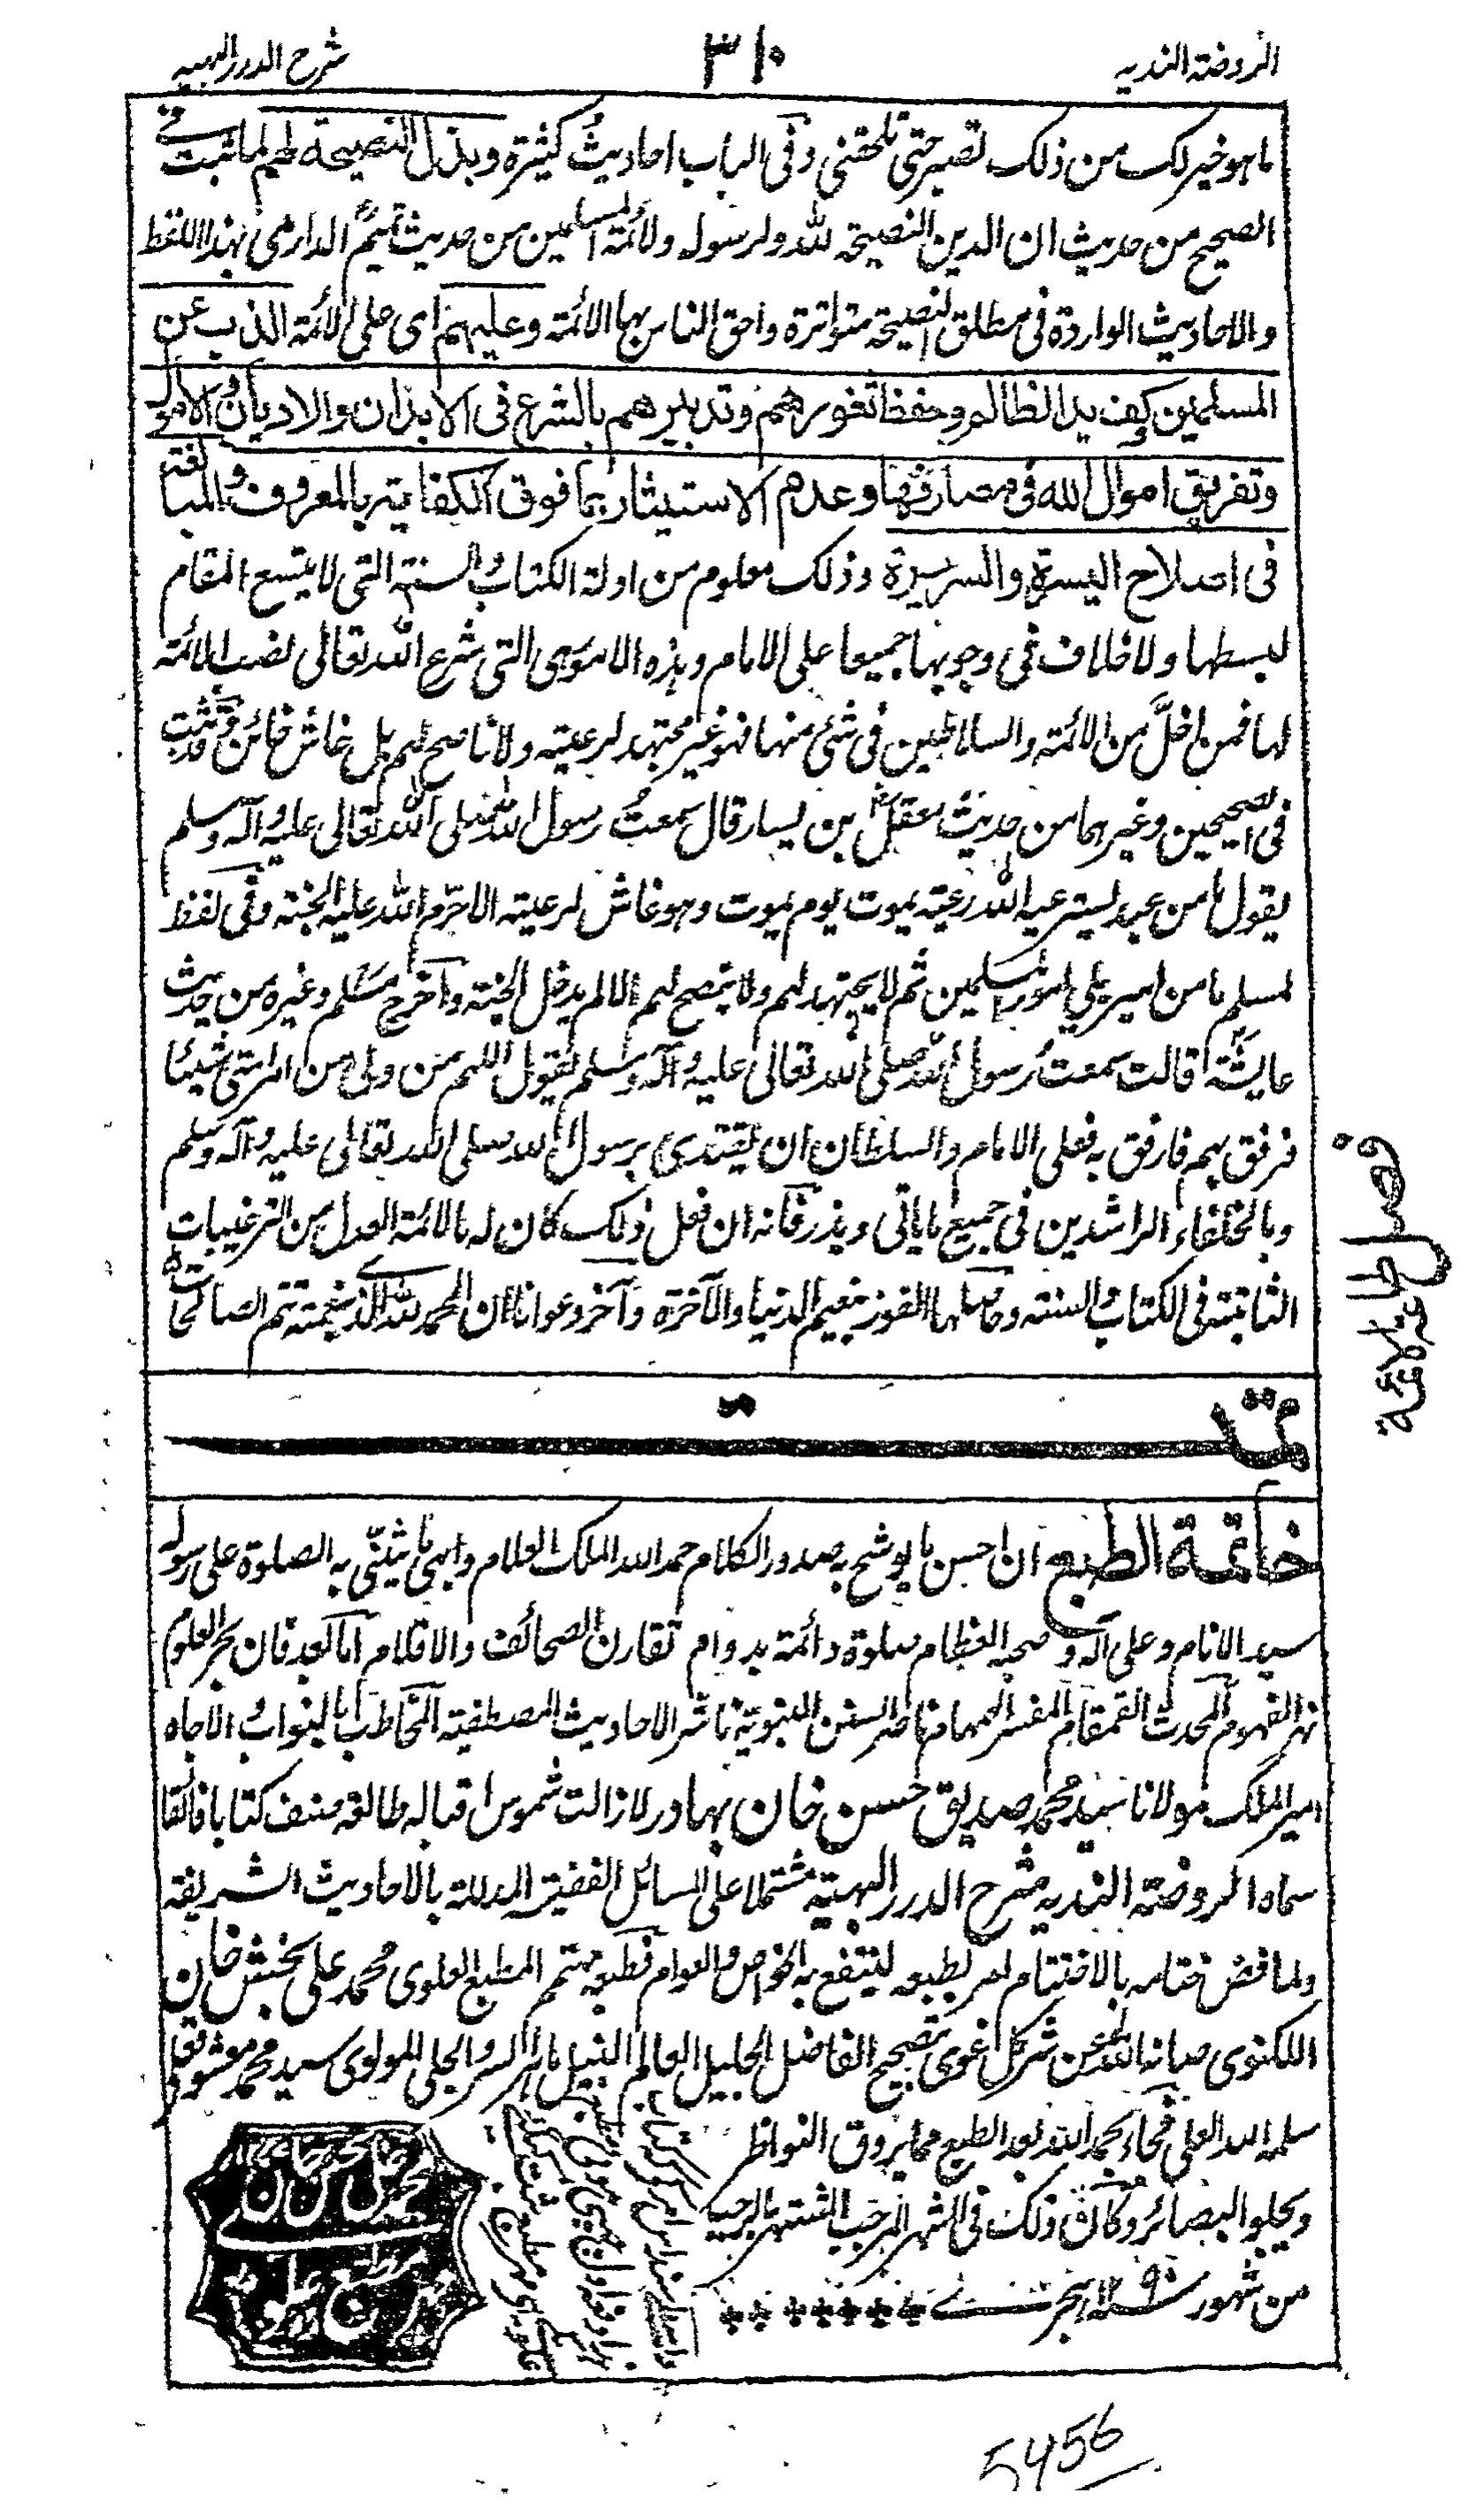 الروضة الندية
٣١٠
شرح الدرر البهية
ما هو خير لك من ذلك تصبر حتى تلحقنى وفى الباب احاديث كثيرة وبذل النصيحة لهم لما ثبت فى
الصحيح من حديث ان الدين النصيحة لله ولرسوله ولائمة المسلمين من حديث تميم الدارمى بهذا اللفظ
والاحاديث الواردة فى مطلق النصيحة متواترة واحق الناس بها الائمة وعليهم اى على الائمة الذب عن
المسلمين وكف يد الظالم وحفظ ثغورهم وتدبيرهم بالشرع فى الابدان والاديان والاموال
وتفريق اموال الله فى مصارفها وعدم الاستيثار بما فوق الكفاية بالمعروف والمبالغة
فى اصلاح السيرة والسريرة وذلك معلوم من ادلة الكتاب والسنة التى لا يتسع المقام
لبسطها ولا خلاف فى وجوبها جميعا على الامام وهذه الامور هى التى شرع الله تعالى نصب الائمة
لها فمن اخل من الائمة والسلاطين فى شئ منها فهو غير مجتهد لرعيته ولا ناصح لهم بل غاش خائن وقد ثبت
فى الصحيحين وغيرهما من حديث معقل بن يسار قال سمعت رسول الله صلى الله تعالى عليه وآله وسلم
يقول ما من عبد يسترعيه الله رعية يموت يوم يموت وهو غاش لرعيته الا حرم الله عليه الجنة وفى لفظ
لمسلم ما من امير يلي امور المسلمين ثم لا يجتهد لهم ولا ينصح لهم الا لم يدخل الجنة وآخرج مسلم وغيره من حديث
عايشة قالت سمعت رسول الله صلى الله تعالى عليه وآله وسلم يقول اللهم من ولى من امر امتى شيئا
فرفق بهم فارفق به فعلى الامام والسلطان ان يقتدى برسول الله صلى الله تعالى عليه وآله وسلم
وبالخلفاء الراشدين فى جميع ما ياتى ويذر فانه ان فعل ذلك كان له ما لائمة العدل من الترغيبات
الثابتة فى الكتاب والسنة وحاصلها الفوز بنعيم الدنيا والآخرة وآخر دعوانا ان الحمد لله الذى بنعمته تتم الصالحات
فصل طاعة الائمة
تمت
خاتمة الطبع ان احسن ما يوشح به صدور الكلام حمد الله الملك العلام وابهى ما يثنى به الصلوة على رسوله
سيد الانام وعلى آله وصحبه العظام صلوة دائمة بدوام تقارن الصحائف والاقلام اما بعد فان بحر العلوم
نهر الفهوم المحدث القمقام المفسر الهمام ناصر السنن النبوية ناشر الاحاديث المصطفية المخاطب بالنواب الاجاه
امير الملك مولانا سيد محمد صديق حسن خان بهادر لا زالت شموس اقباله طالعة صنف كتابا فائقا
سماه الروضة الندية شرح الدرر البهية مشتملا على المسائل الفقهية المدللة بالاحاديث الشريفة
ولما فض ختامه بالاختتام امر بطبعه لينتفع به الخواص والعوام فطبعه مهتمم المطبع العلوى محمد على بخش خان
اللكنوى صانه الله عن شر كل غوى بتصحيح الفاضل الجليل العالم النبيل ماهر السر والجلى المولوى سيد محمد معشوق على
سلمه الله العلى فجاء بحمد الله بعد الطبع مما يروق النواظر
ويجلو البصائر وكان ذلك فى الشهر المرجب المشتهر بالرجب
من شهور سنة ١٢٩٠ هجرى
5456